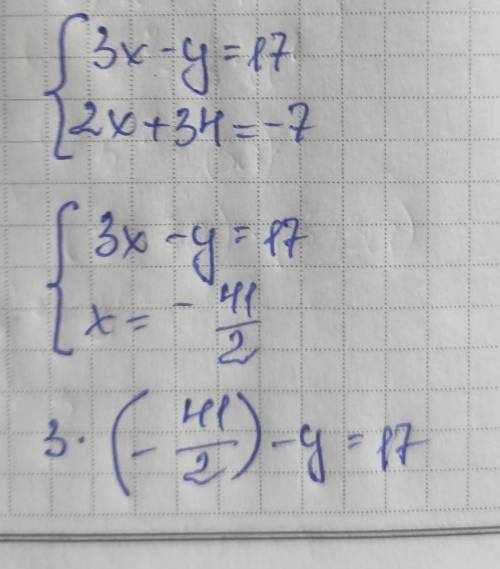 3x - y = 17
2x + 34 = -7
3x - y = 17
x = - 41/2
3 · (- 41/2) - y = 17